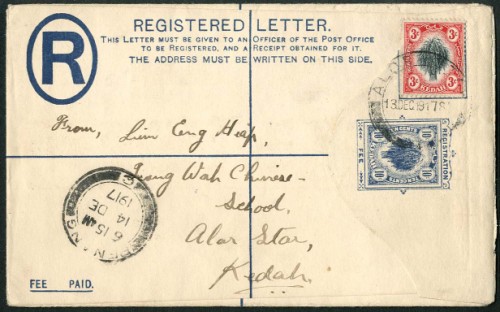 R
REGISTERED LETTER.
THIS LETTER MUST BE GIVEN TO AN OFFICER OF THE POST OFFICE
TO BE REGISTERED, AND A RECEIPT OBTAINED FOR IT.
THE ADDRESS MUST BE WRITTEN ON THIS SIDE.
3c 3c
KEDAH
13 DEC 1917
REGISTRATION
FEE
TEN CENTS
10 10
From, Lim Eng Heap,
Wah Chinese
School,
Alor Star,
Kedah.
PENANG
6 15 AM
14 DE
1917
FEE PAID.